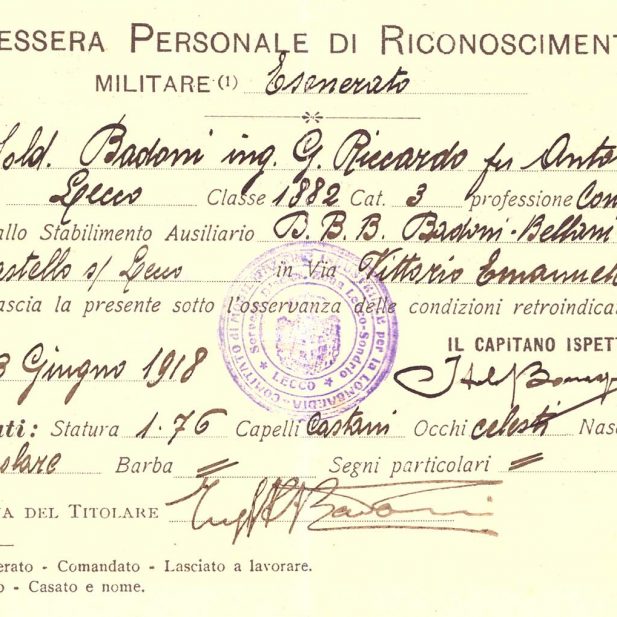 ESSERA PERSONALE DI RICONOSCIMENT
MILITARE (1) Esonerato
Sold. Badoni ing. G. Riccardo fu Anto
Lecco Classe 1882 Cat. 3 professione Con
allo Stabilimento Ausiliario B. B. B. Badoni-Bellani
astello s/ Lecco in Via Vittorio Emanuele
ascia la presente sotto l'osservanza delle condizioni retroindicat
3 Giugno 1918
IL CAPITANO ISPETT
COMITATO di MOBILITAZIONE INDUSTRIALE per la LOMBARDIA
Lecco-Sondrio
LECCO
ti: Statura 1.76 Capelli castani Occhi celesti Nas
olare Barba = Segni particolari =
A DEL TITOLARE Badoni
erato - Comandato - Lasciato a lavorare.
o - Casato e nome.